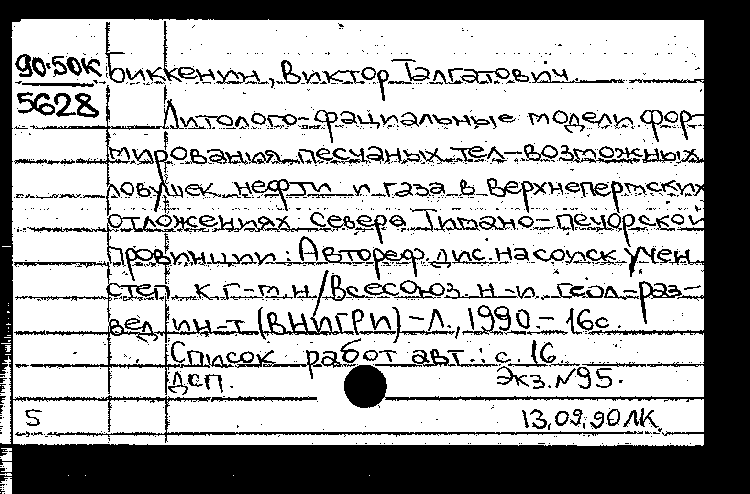 90-50к Биккенин, Виктор Талгатович.
5628 Литолого-фациальные модели фор-
мирования песчаных тел-возможных
ловушек нефти и газа в верхнепермских
отложениях севера Тимано-печорской
провинции: Автореф. дис. на соиск учен
степ. к.г-м.н/Всесоюз. н-и. геол-раз-
вед. ин-т (ВНИГРИ)-Л., 1990.-16с.
Список работ авт.: с. 16.
Дсп. Экз. №95.
5 13,09,90 ЛК.